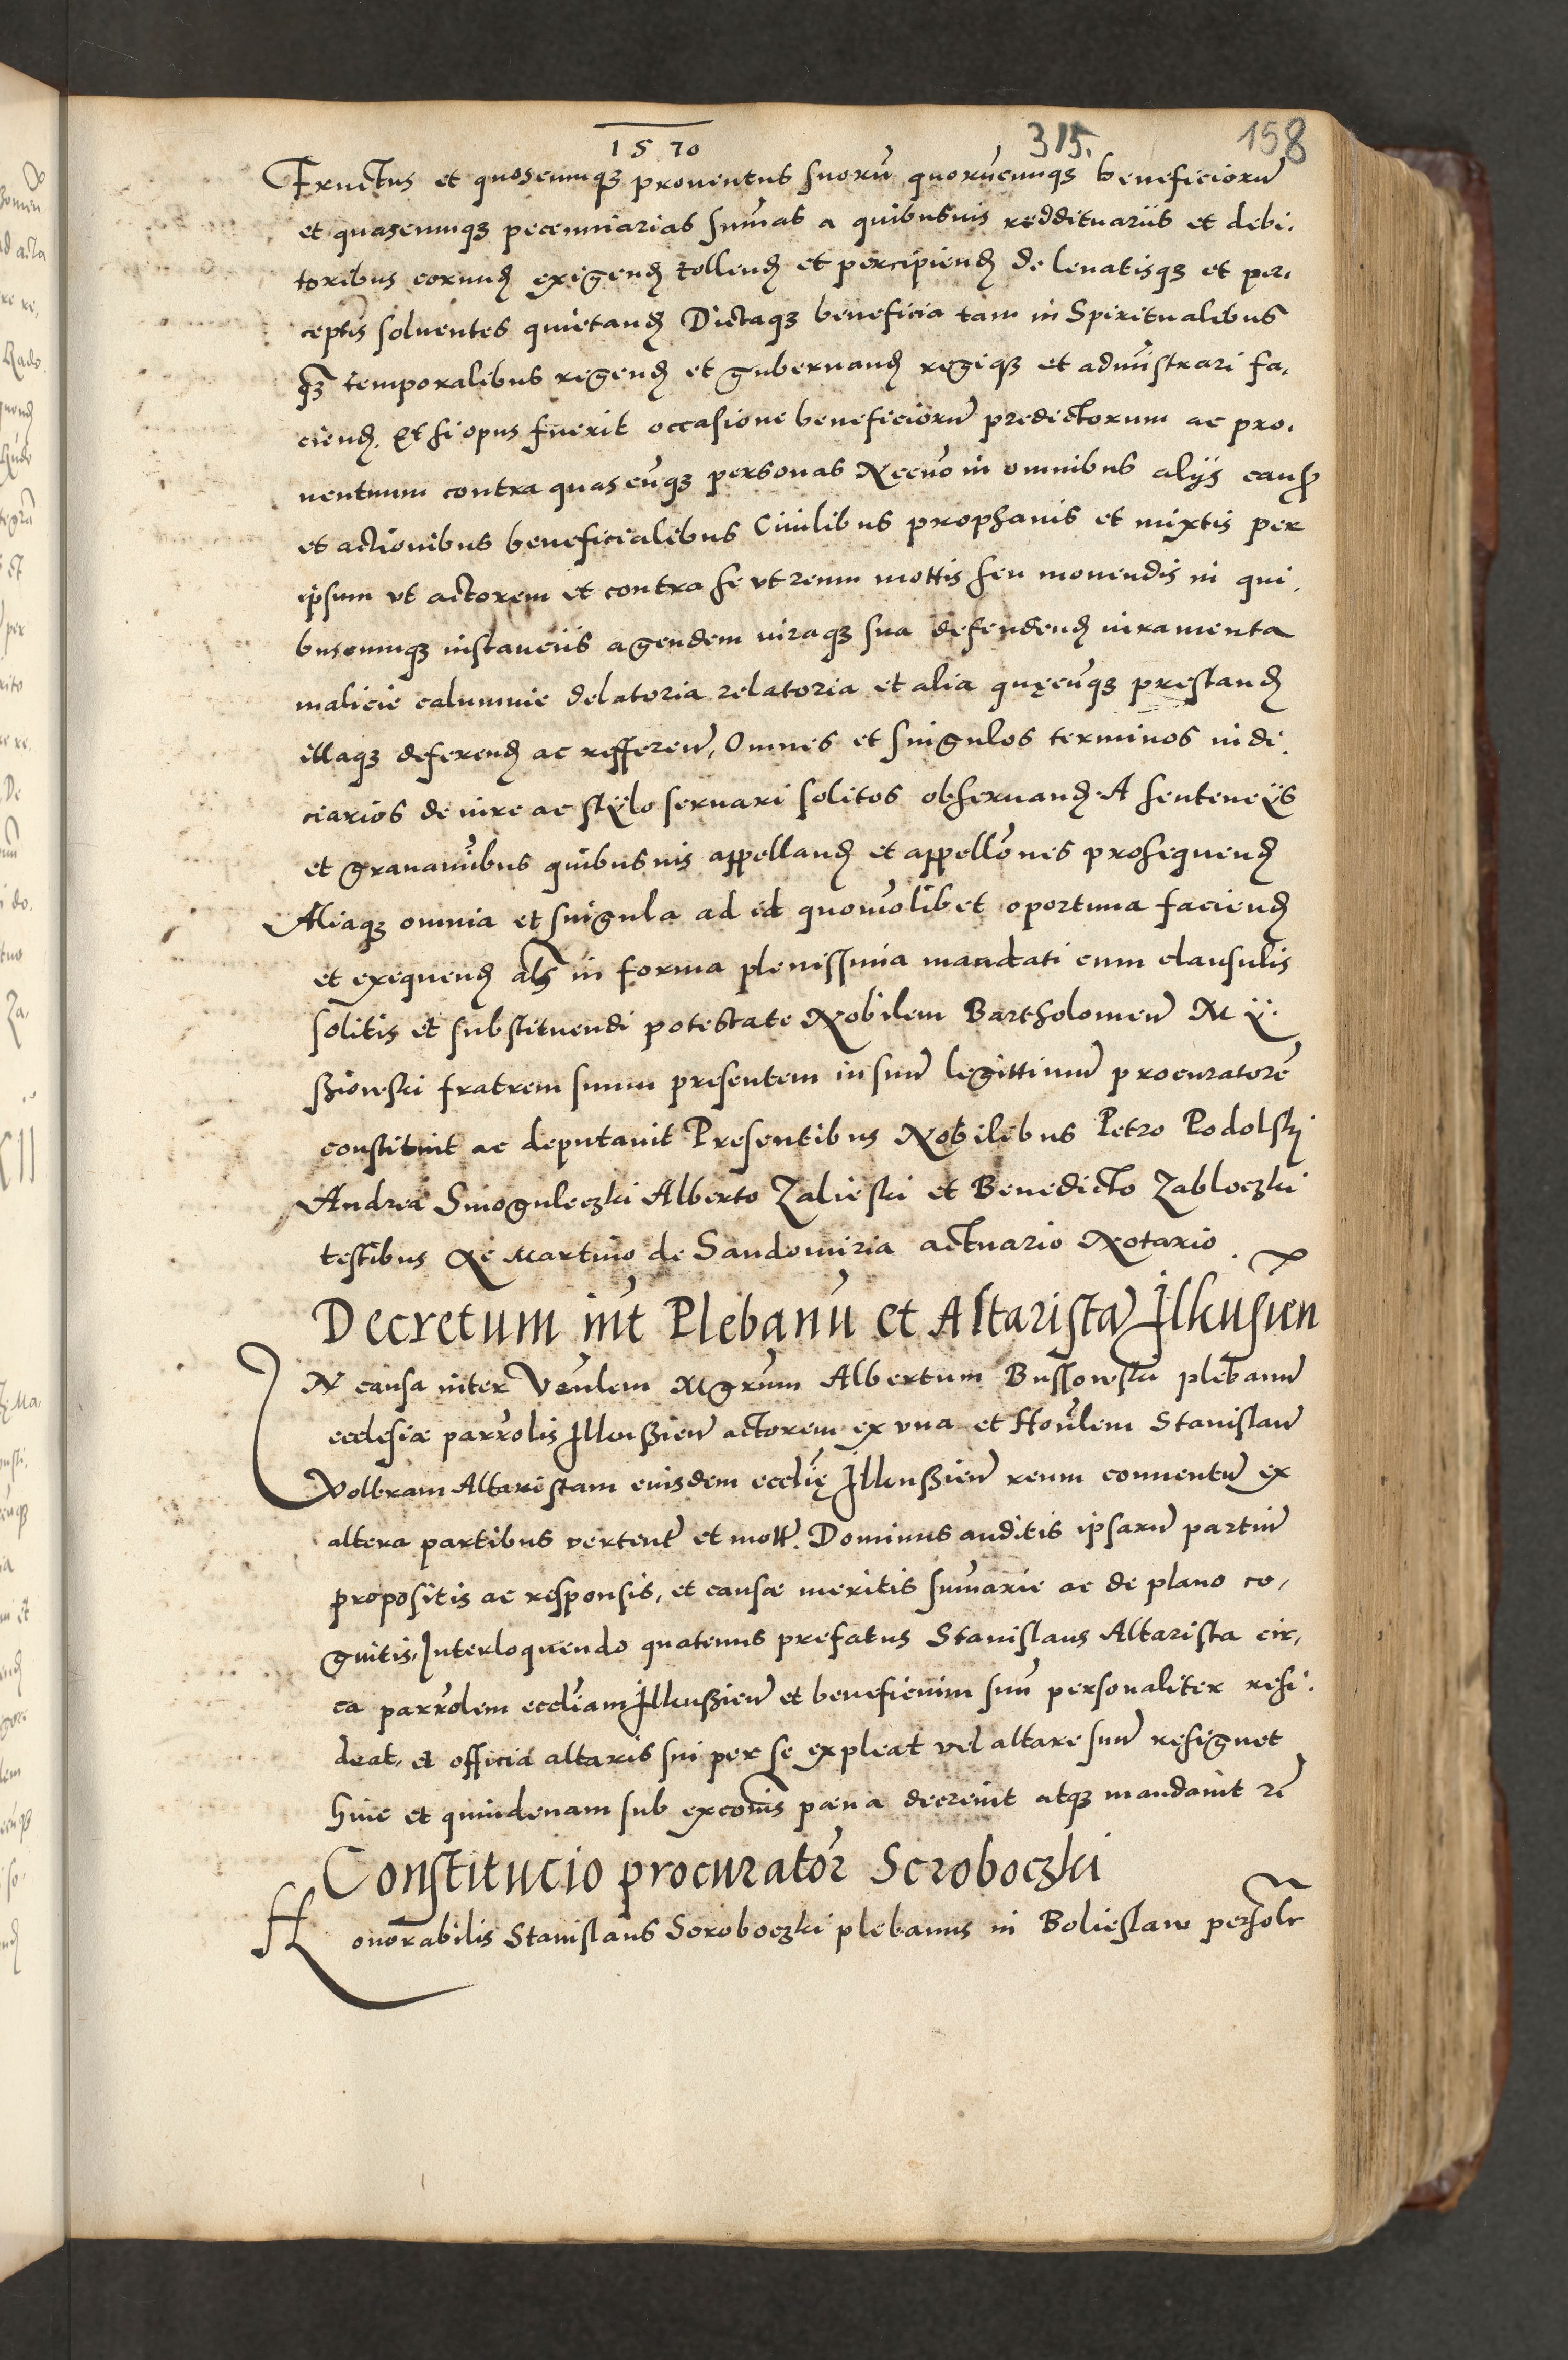 1570
315.
158
Fructus et quoscunqȝ prouentus suorū quorūcunqȝ beneficiorū
et quascunqȝ peccuniarias sum̄as a quibusuis reddituariis et debi.
toribus eorund̨ exigend̨ tollend̨ et percipiend̨ de leuatisqȝ et per,
ceptis soluentes quietand̨ Dictaqȝ beneficia tam in Spiritualibus
qȝ temporalibus regend̨ et gubernand̨ regiqȝ et adm̄istrari fa,
ciend̨. Et si opus fuerit occasione beneficiorū predictorum ac pro,
uentuum contra quascūqȝ personas Necnō in omnibus alijs caus̨
et actionibus beneficialibus Ciuilibus prophanis et mixtis per
ipsum vt actorem et contra se vt reum mottis seu mouendis in qui,
buscunqȝ instanciis agendem iuraqȝ sua defendend̨ iuramenta
malicie calumnie delatoria relatoria et alia quęcūqȝ prestand̨
illaqȝ deferend̨ ac refferen̄, Omnes et singulos terminos iudi.
ciarios de iure ac stÿlo seruari solitos obseruand̨. A sentencÿs
et grauam̄ibus quibusuis appelland̨ et appellōnes prosequend̨
Aliaqȝ omnia et singula ad id quomōlibet oportuna faciend̨
et exequend̨ als̄ in forma plenissima mandati cum clausulis
solitis et substituendi potestate Nobilem Bartholomeū Mÿ.
ßkowski fratrem suum presentem in suū legittimū procuratorē
constituit ac deputauit Presentibus Nobilibus Petro Podolski
Andrea Smoguleczki Alberto Zalieski et Benedicto Zabloczki
testibus Et Martino de Sandomiria actuario Notario.
Decretum int̄ Plebanū et Altaristā Ilkusien̄
IN causa inter Venl̄em Mgr̄um Albertum Bussowski plebanū
ecclesiæ parr̄olis Ilkußien̄ actorem ex vna et Hon̄lem Stanislaū
Wolbram Altaristam eiusdem eccl̄ię Ilkußien̄ reum conuentū ex
altera partibus verten̄t et mott̄. Dominus auditis ipsarū partiū
propositis ac responsis, et causæ meritis sum̄arie ac de plano co,
gnitis, Interloquendo quatenus prefatus Stanislaus Altarista cir,
ca parr̄olem eccl̄iam Ilkußien̄ et beneficium suū personaliter resi.
deat, et officia altaris sui per se expleat vel altare suū resignet
hinc et quindenam sub excōnis pæna decreuit atqȝ mandauit rē
Constitucio procurator̄ Scroboczki
Honorabilis Stanislaus Scroboczki plebanus in Bolieslaw personlr̄